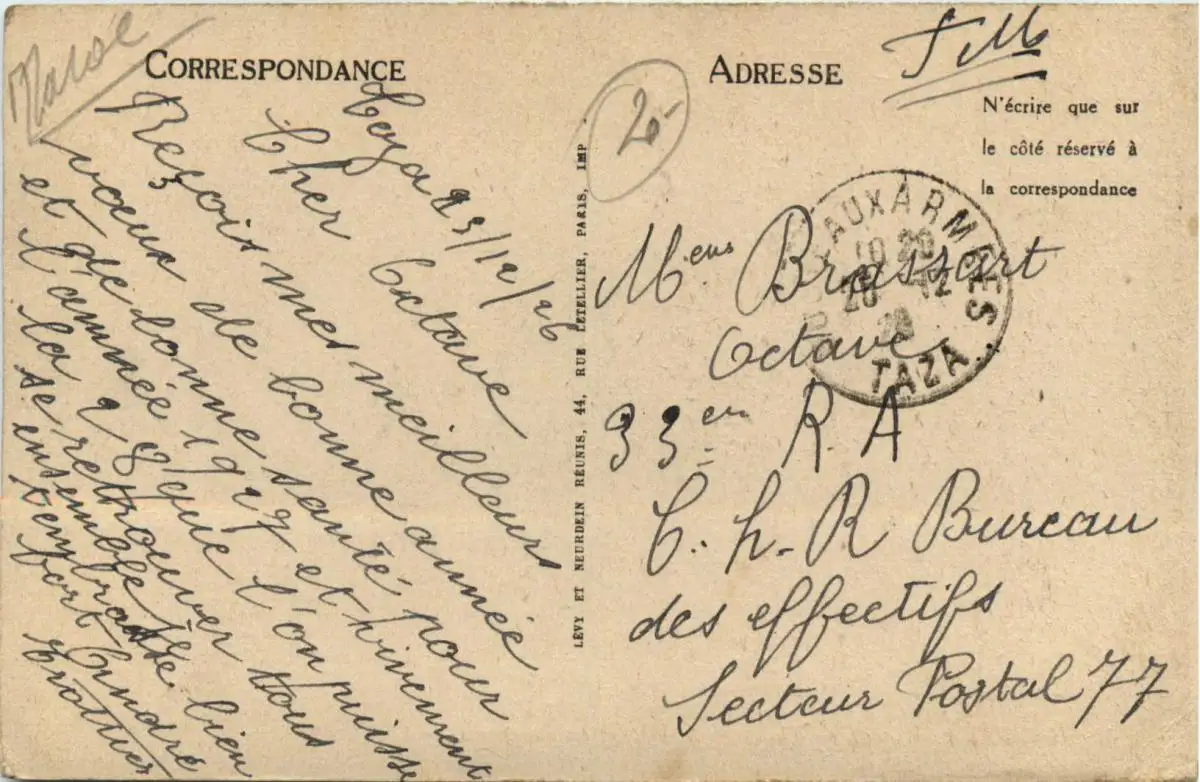 Maroc
CORRESPONDANCE
Taza 23/12/26
Cher Octave
Reçois mes meilleurs
vœux de bonne année
et de bonne santé, pour
l'année 1927 et vivement
la 28 que l'on puisse
se retrouver tous
ensemble. Je
t'embrasse bien
fort André
LÉVY ET NEURDEIN RÉUNIS, 44, RUE LETELLIER, PARIS, IMP.
20-
ADRESSE
F M
N'écrire que sur
le côté réservé à
la correspondance
AUX ARMÉES
TAZA
Mens Brassart
Octave
33em R. A
C. h. R Bureau
des effectifs
Secteur Postal 77